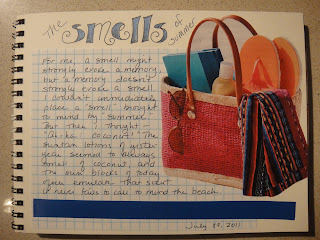 The Smells of Summer
For me, a smell might
strongly evoke a memory,
but a memory doesn't
strongly evoke a smell.
I couldn't immediately
place a smell brought
to mind by "summer."
But then I thought -
"Ah-ha! Coconut!" The
suntan lotions of yester-
year seemed to always
smell of coconut, and
the sun blocks of today
often emulate that scent.
It never fails to call to mind the beach.
July 2011